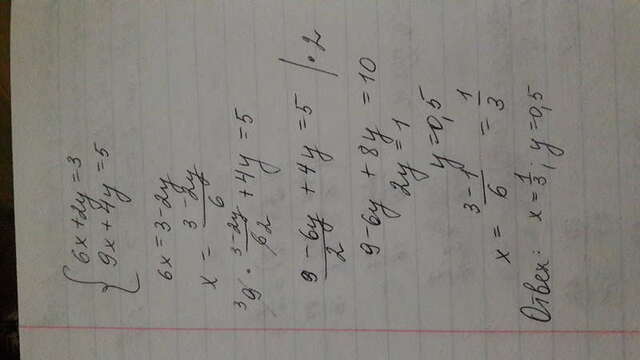 { 6x+2y=3
9x+4y=5
6x=3-2y
x = (3-2y)/6
³9 · (3-2y)/6 2 +4y=5
(9-6y)/2 +4y=5 | · 2
9-6y+8y=10
2y=1
y=0,5
x = (3-1)/6 = 1/3
Ответ: x=1/3, y=0,5